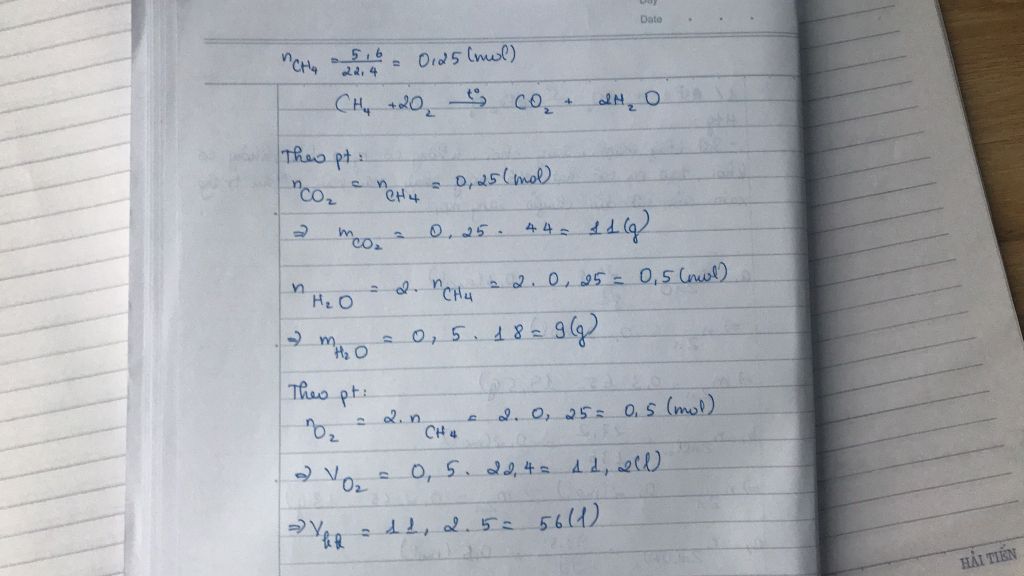 Day
Date
nCH₄ = 5,6/22,4 = 0,25 (mol)
CH₄ + 2O₂ —t°→ CO₂ + 2H₂O
Theo pt:
nCO₂ = nCH₄ = 0,25 (mol)
⇒ mCO₂ = 0,25 . 44 = 11 (g)
nH₂O = 2. nCH₄ = 2. 0,25 = 0,5 (mol)
⇒ mH₂O = 0,5 . 18 = 9 (g)
Theo pt:
nO₂ = 2. nCH₄ = 2. 0,25 = 0,5 (mol)
⇒ VO₂ = 0,5 . 22,4 = 11,2 (l)
⇒ Vkk = 11,2 . 5 = 56 (l)
HẢI TIẾN